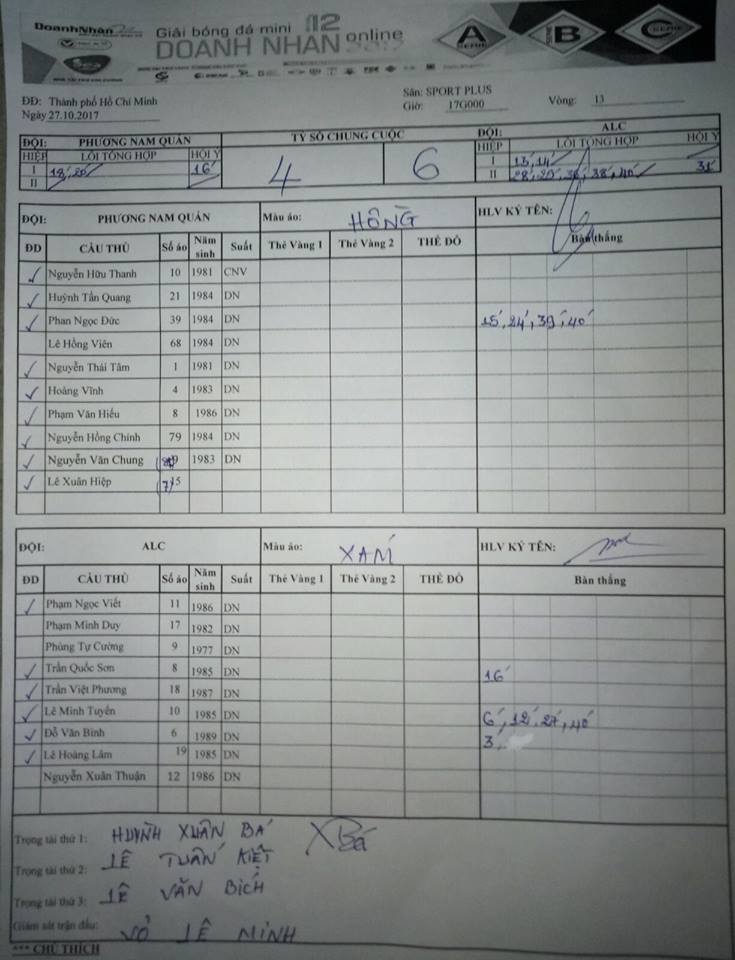 DoanhNhân
Giải bóng đá mini 12
DOANH NHÂN online
SERIE A
SERIE B
SERIE C
ĐĐ: Thành phố Hồ Chí Minh
Ngày 27.10.2017
Sân: SPORT PLUS
Giờ: 17G000
Vòng: 13
ĐỘI: PHƯƠNG NAM QUÁN TỶ SỐ CHUNG CUỘC ĐỘI: ALC
HIỆP LỖI TỔNG HỢP HỘI Ý 4 6 HIỆP LỖI TỔNG HỢP HỘI Ý
I 18', 20' 16' I 13', 14'
II II 28', 29', 38', 40' 31'
ĐỘI: PHƯƠNG NAM QUÁN Màu áo: HỒNG HLV KÝ TÊN:
ĐD CẦU THỦ Số áo Năm sinh Suất Thẻ Vàng 1 Thẻ Vàng 2 THẺ ĐỎ Bàn thắng
✓ Nguyễn Hữu Thanh 10 1981 CNV
✓ Huỳnh Tấn Quang 21 1984 DN
✓ Phan Ngọc Đức 39 1984 DN 15', 24', 39', 40'
Lê Hồng Viên 68 1984 DN
✓ Nguyễn Thái Tâm 1 1981 DN
✓ Hoàng Vĩnh 4 1983 DN
✓ Phạm Văn Hiếu 8 1986 DN
✓ Nguyễn Hồng Chính 79 1984 DN
✓ Nguyễn Văn Chung 1983 DN
✓ Lê Xuân Hiệp
ĐỘI: ALC Màu áo: XÁM HLV KÝ TÊN:
ĐD CẦU THỦ Số áo Năm sinh Suất Thẻ Vàng 1 Thẻ Vàng 2 THẺ ĐỎ Bàn thắng
✓ Phạm Ngọc Viết 11 1986 DN
Phạm Minh Duy 17 1982 DN
Phùng Tự Cường 9 1977 DN
✓ Trần Quốc Sơn 8 1985 DN 16'
✓ Trần Việt Phương 18 1987 DN
✓ Lê Minh Tuyển 10 1985 DN 6', 12', 27', 40'
✓ Đỗ Văn Bình 6 1989 DN 3'
✓ Lê Hoàng Lâm 19 1985 DN
Nguyễn Xuân Thuận 12 1986 DN
Trọng tài thứ 1: HUỲNH XUÂN BÁ XBá
Trọng tài thứ 2: LÊ TUẤN KIỆT
Trọng tài thứ 3: LÊ VĂN BÍCH
Giám sát trận đấu: VÕ LÊ MINH
*** CHÚ THÍCH